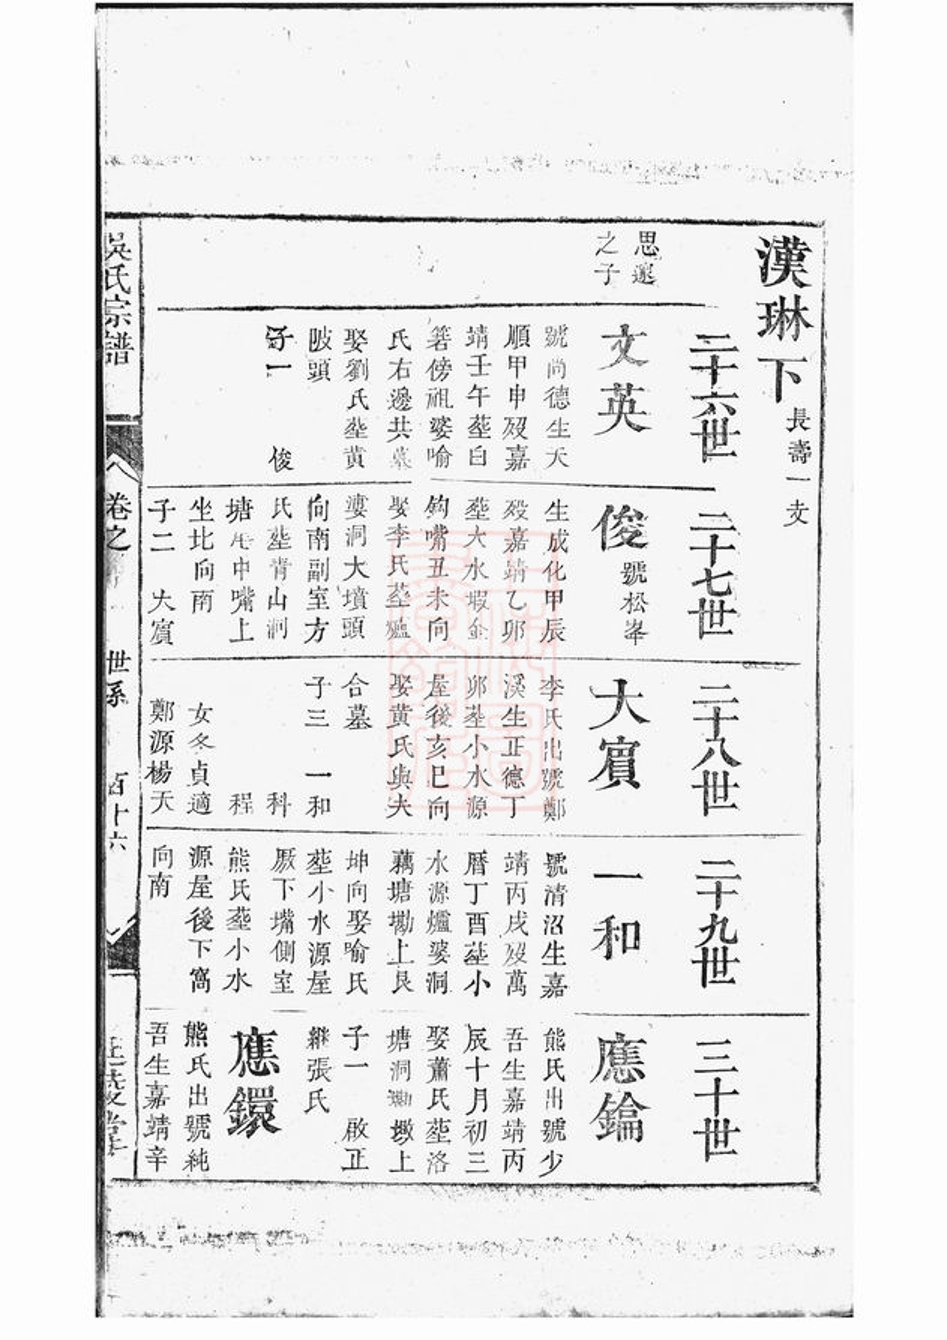 漢琳下
長壽一支
二十六世
二十七世
二十八世
二十九世
三十世
思邈
之子
文英
號尚德生天
順甲申歿嘉
靖壬午塟白
箬傍祖婆喻
氏右邊共墓
娶劉氏塟黄
陂頭
子一 俊
俊號松峯
生成化甲辰
歿嘉靖乙卯
塟大水塅金
鈎嘴丑未向
娶李氏塟爐
婆洞大墳頭
向南副室方
氏塟靑山洞
塘尾中嘴上
坐北向南
子二 大賔
大賔
李氏出號鄭
溪生正德丁
卯塟小水源
屋後亥巳向
娶黄氏與夫
合墓
子三 一和
科
程
女冬貞適
鄭源楊天
一和
號清沼生嘉
靖丙戌歿萬
曆丁酉塟小
水源爐婆洞
藕塘墈上艮
坤向娶喻氏
塟小水源屋
厫下嘴側室
熊氏塟小水
源屋後下窩
向南
應鑰
熊氏出號少
吾生嘉靖丙
辰十月初三
娶蕭氏塟洛
塘洞墈墩上
子一 啟正
繼張氏
應鐶
熊氏出號純
吾生嘉靖辛
吳氏宗譜
卷之
世系
百十六